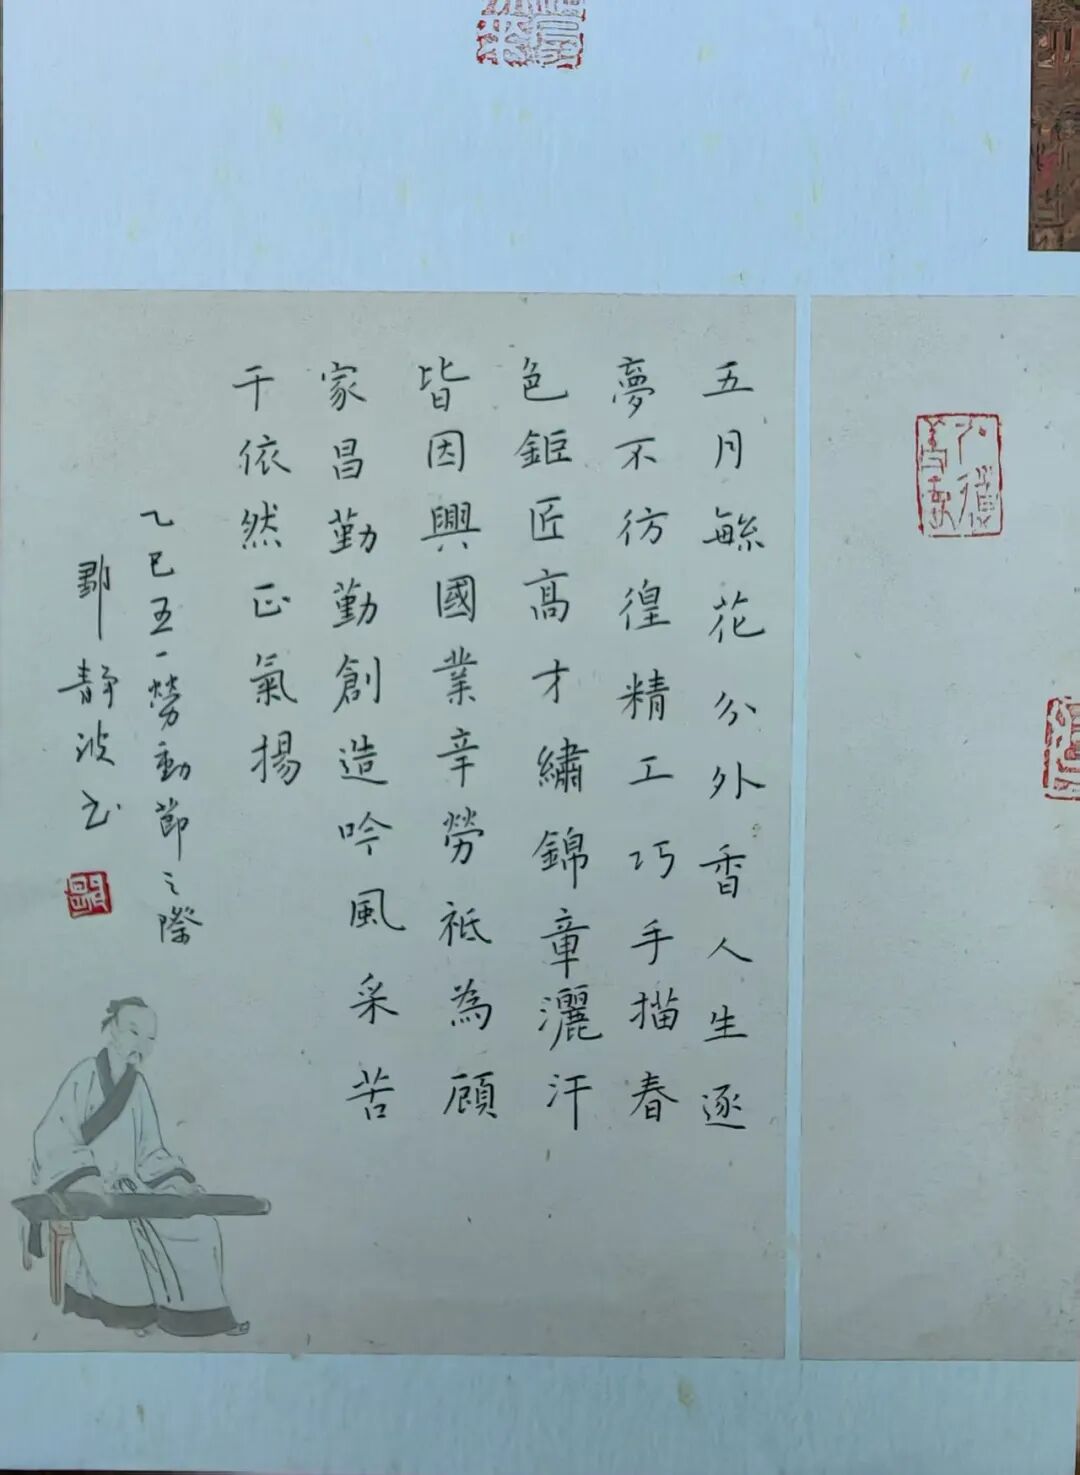 五月緐花分外香人生逐
夢不彷徨精工巧手描春
色鉅匠高才繡錦章灑汗
皆因興國業辛勞祗為顧
家昌勤勤創造吟風采苦
干依然正氣揚
乙巳五一勞動節之際
鄢靜波書